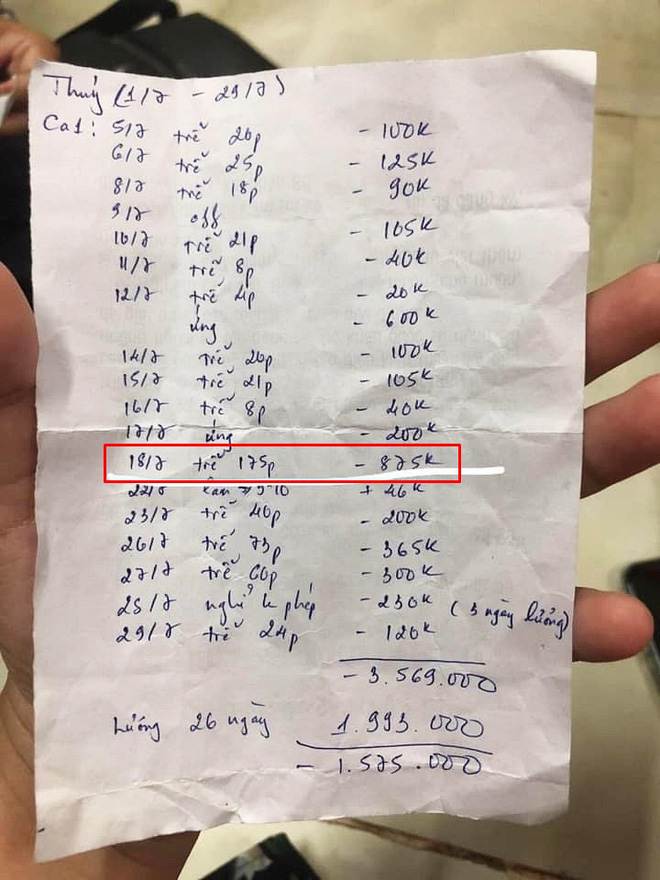 Thuý (1/7 - 29/7)
Ca1: 5/7 trễ 20p - 100K
6/7 trễ 25p - 125K
8/7 trễ 18p - 90K
9/7 off
10/7 trễ 21p - 105K
11/7 trễ 8p - 40K
12/7 trễ 4p - 20K
ứng - 600K
14/7 trễ 20p - 100K
15/7 trễ 21p - 105K
16/7 trễ 8p - 40K
17/7 ứng - 200K
18/7 trễ 175p - 875K
22/7 + 46K
23/7 trễ 40p - 200K
26/7 trễ 73p - 365K
27/7 trễ 60p - 300K
28/7 nghỉ k phép - 230K (3 ngày lương)
29/7 trễ 24p - 120K
- 3.569.000
Lương 26 ngày 1.993.000
- 1.575.000